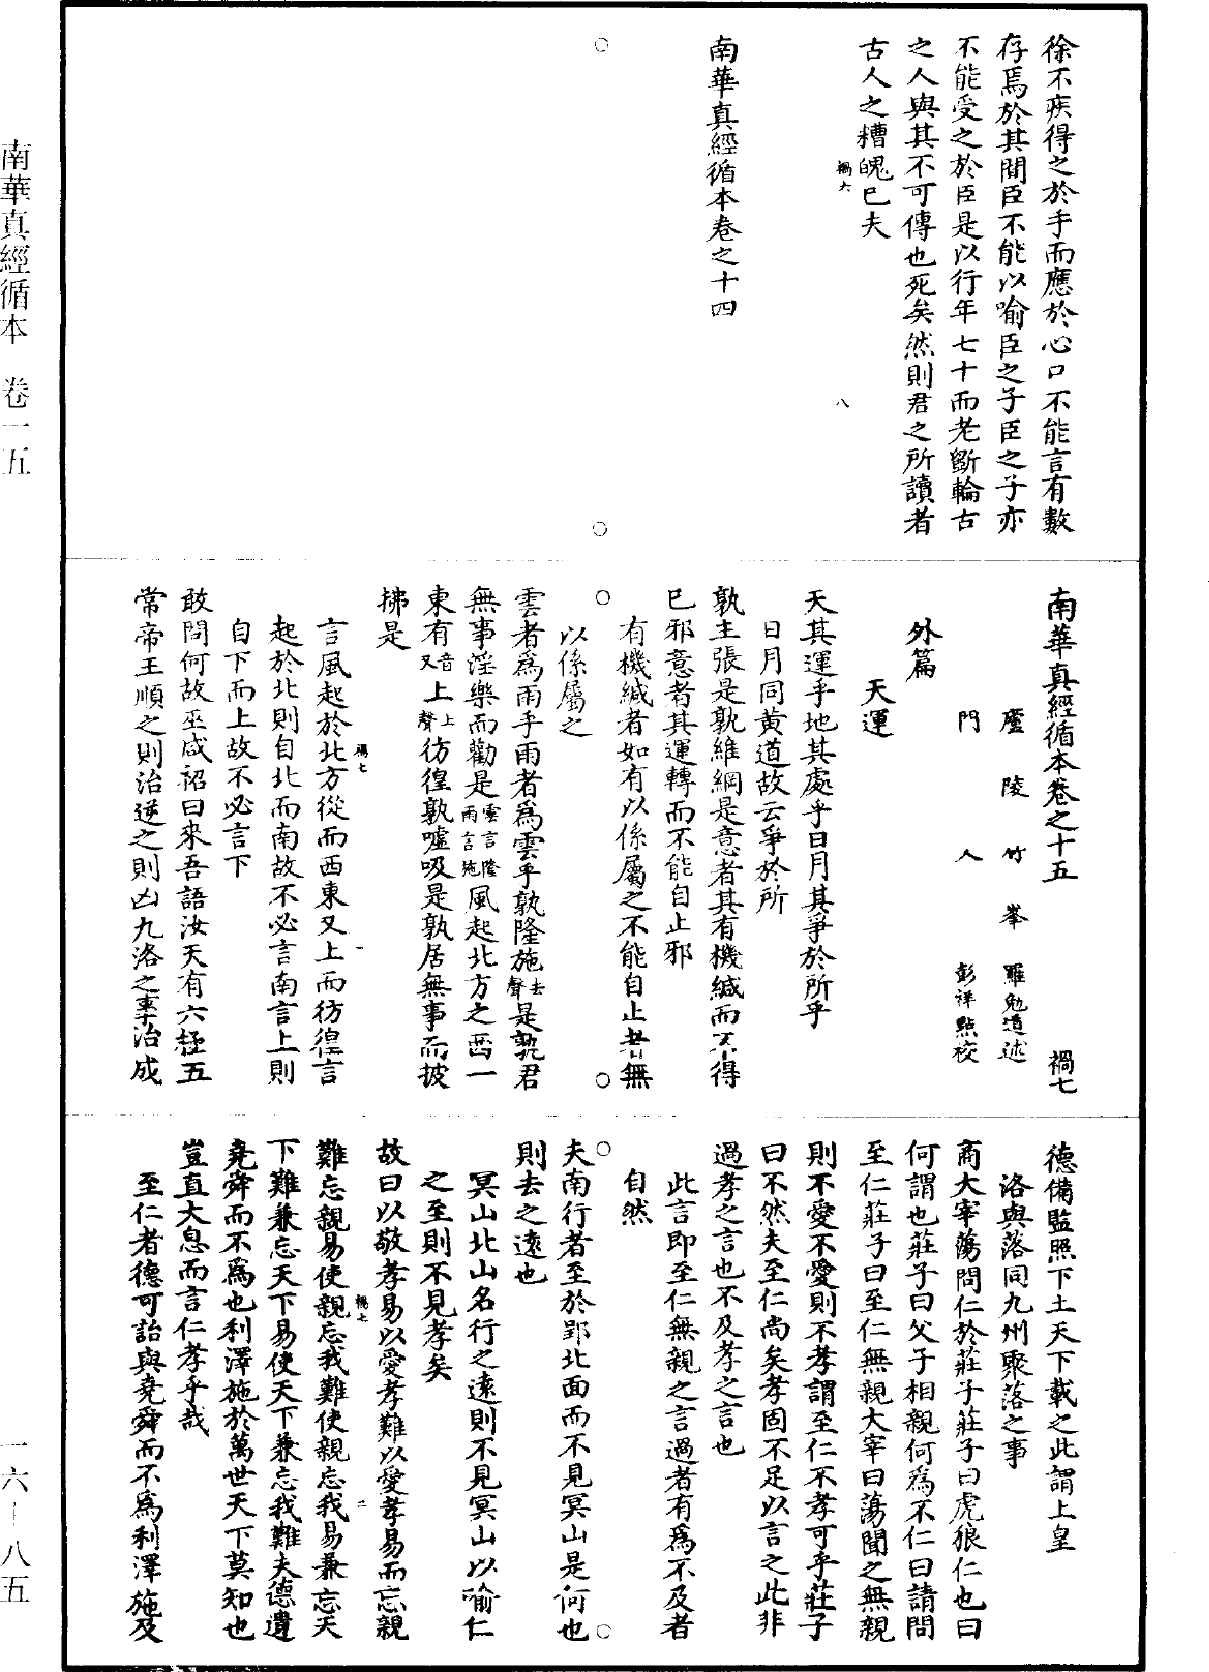 徐不疾得之於手而應於心口不能言有數
存焉於其間臣不能以喻臣之子臣之子亦
不能受之於臣是以行年七十而老斲輪古
之人與其不可傳也死矣然則君之所讀者
古人之糟魄已夫
禍六
八
南華真經循本卷之十四
南華真經循本卷之十五
禍七
廬陵竹峯羅勉道述
門人彭祥點校
外篇
天運
天其運乎地其處乎日月其爭於所乎
日月同黃道故云爭於所
孰主張是孰維綱是意者其有機緘而不得
已邪意者其運轉而不能自止邪
有機緘者如有以係屬之不能自止者無
以係屬之
雲者為雨乎雨者為雲乎孰隆施去聲是孰君
無事淫樂而勸是雲言隆雨言施風起北方之西一
東有音又上上聲彷徨孰噓吸是孰居無事而披
拂是
禍七
一
言風起於北方從而西東又上而彷徨言
起於北則自北而南故不必言南言上則
自下而上故不必言下
敢問何故巫咸祒曰來吾語汝天有六極五
常帝王順之則治逆之則凶九洛之事治成
德備監照下土天下載之此謂上皇
洛與落同九州聚落之事
商大宰蕩問仁於莊子莊子曰虎狼仁也曰
何謂也莊子曰父子相親何為不仁曰請問
至仁莊子曰至仁無親大宰曰蕩聞之無親
則不愛不愛則不孝謂至仁不孝可乎莊子
曰不然夫至仁尚矣孝固不足以言之此非
過孝之言也不及孝之言也
此言即至仁無親之言過者有為不及者
自然
夫南行者至於郢北面而不見冥山是何也
則去之遠也
冥山北山名行之遠則不見冥山以喻仁
之至則不見孝矣
故曰以敬孝易以愛孝難以愛孝易而忘親
禍七
二
難忘親易使親忘我難使親忘我易兼忘天
下難兼忘天下易使天下兼忘我難夫德遺
堯舜而不為也利澤施於萬世天下莫知也
豈直大息而言仁孝乎哉
至仁者德可詒與堯舜而不為利澤施及
南華真經循本 卷一五
一六—八五